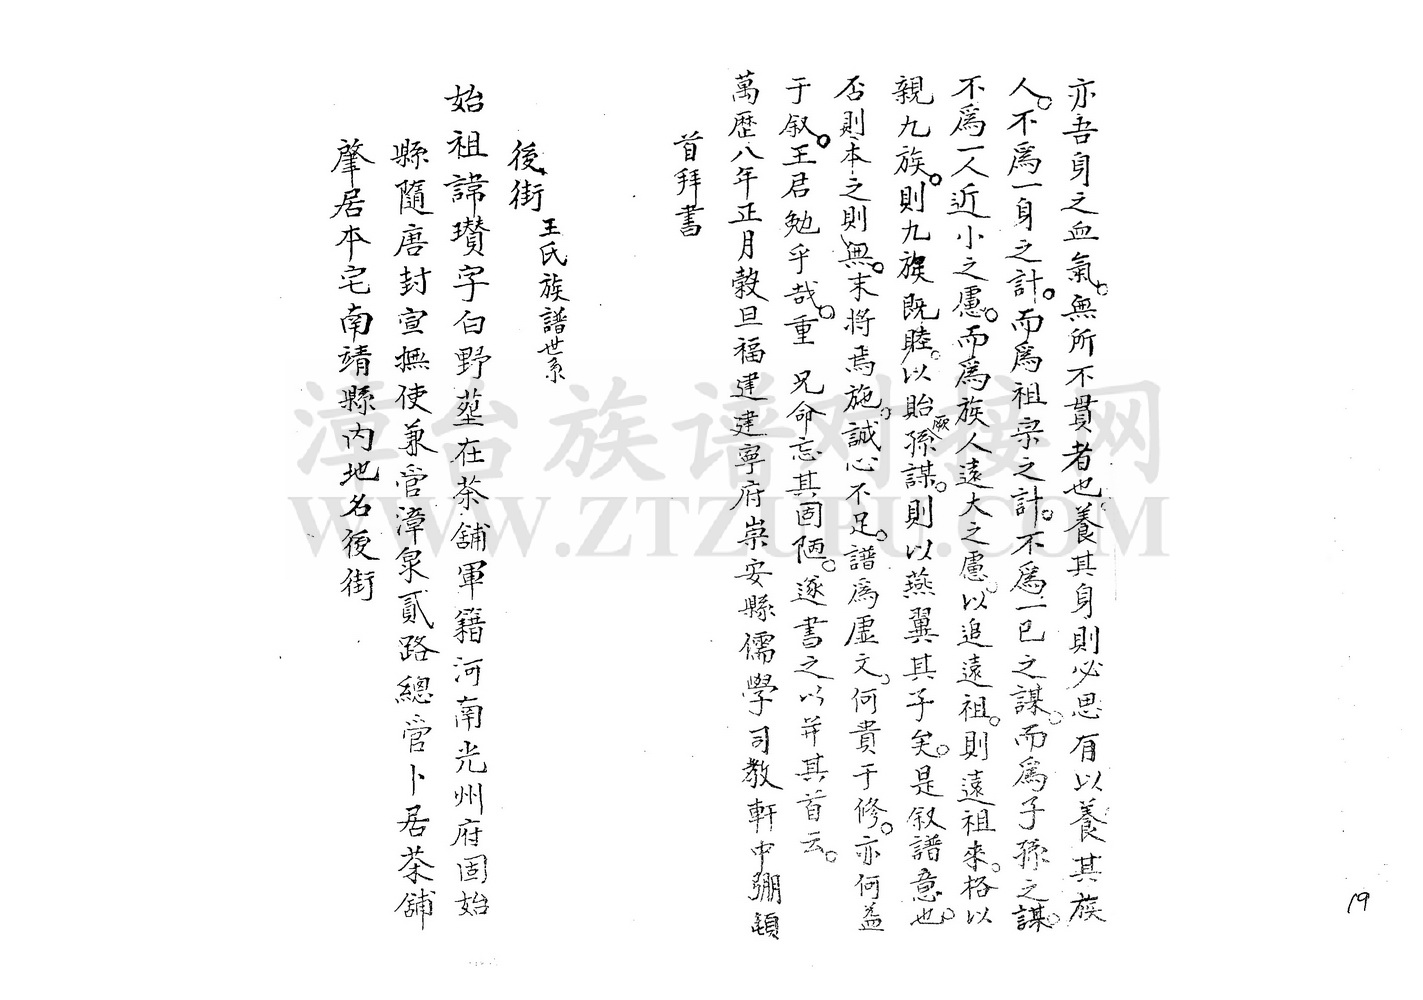 亦吾身之血氣。無所不貫者也。養其身則必思有以養其族
人。不爲一身之計。而爲祖宗之計。不爲一已之謀。而爲子孫之謀。
不爲一人近小之慮。而爲族人遠大之慮。以追遠祖。則遠祖來格。以
親九族。則九族既睦。以貽厥孫謀。則以燕翼其子矣。是叙譜意也。
否則本之則無。末將焉施。誠心不足。譜爲虛文。何貴于修。亦何益
于叙。王君勉乎哉。重 兄命忘其固陋。遂書之以并其首云。
萬歷八年正月穀旦福建建寧府崇安縣儒學司教軒中弸頓
首拜書
後街 王氏族譜世系
始祖諱瓚字白野塟在茶舖軍籍河南光州府固始
縣隨唐封宣撫使兼管漳泉貳路總管卜居茶舖
肇居本宅南靖縣內地名後街
19
漳台族谱对接网
WWW.ZTZUPU.COM